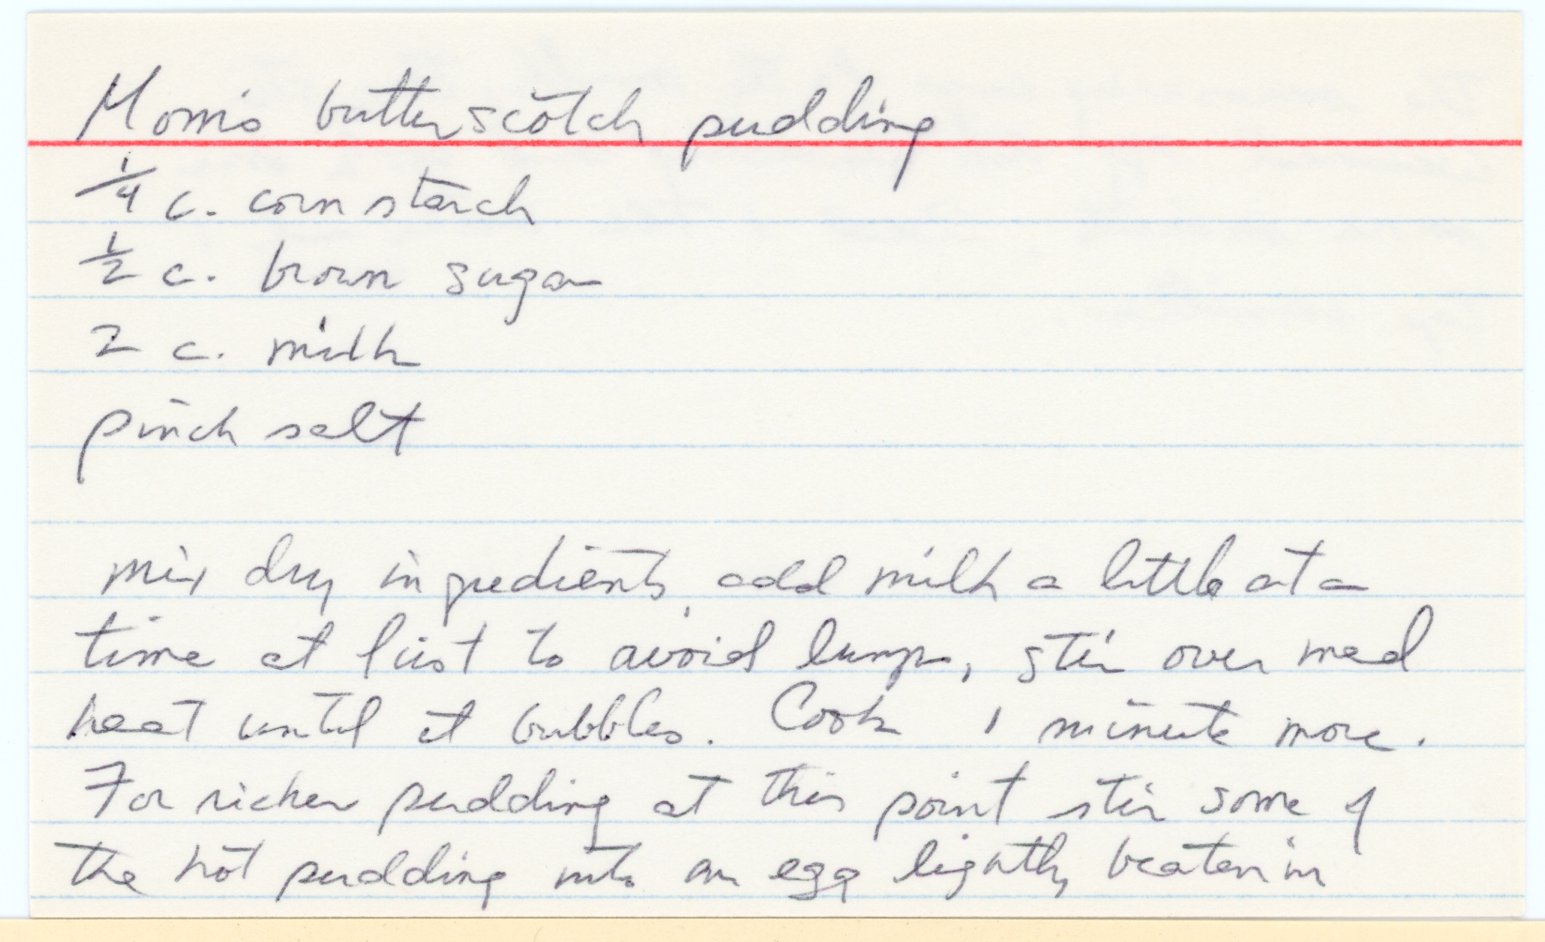 Mom's butterscotch pudding
1/4 c. corn starch
1/2 c. brown sugar
2 c. milk
pinch salt
mix dry ingredients, add milk a little at a
time at first to avoid lumps, stir over med
heat until it bubbles. Cook 1 minute more.
For richer pudding at this point stir some of
the hot pudding into an egg lightly beaten in